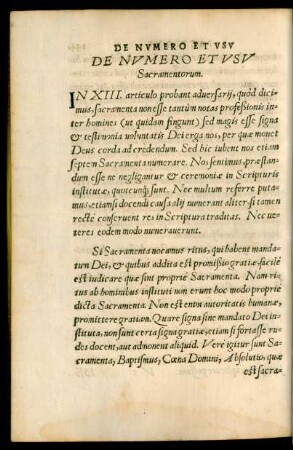 DE NVMERO ET VSV
DE NVMERO ET VSV
Sacramentorum.
IN XIII. articulo probant aduersarij, quòd dici⸗
mus, sacramenta non esse tantùm notas professionis in⸗
ter homines (ut quidam fingunt) sed magis esse signa
& testimonia uoluntatis Dei erga nos, per quæ mouet
Deus corda ad credendum. Sed hic iubent nos etiam
septem Sacramenta numerare. Nos sentimus, præstan⸗
dum esse ne negligantur & ceremoniæ in Scripturis
institutæ, quotcunq; sunt. Nec multum referre puta⸗
mus, etiamsi docendi causa alij numerant aliter, si tamen
rectè conseruent res in Scriptura traditas. Nec ue⸗
teres eodem modo numerauerunt.
Si Sacramenta uocamus ritus, qui habent manda⸗
tum Dei, & quibus addita est promißio gratiæ, facilè
est iudicare quæ sint propriè Sacramenta. Nam ri⸗
tus ab hominibus instituti non erunt hoc modo propriè
dicta Sacramenta. Non est enim autoritatis humanæ,
promittere gratiam. Quare signa sine mandato Dei in⸗
stituta, non sunt certa signa gratiæ, etiam si fortasse ru⸗
des docent, aut admonent aliquid. Verè igitur sunt Sa⸗
cramenta, Baptismus, Cœna Domini, Absolutio, quæ
est sacra⸗